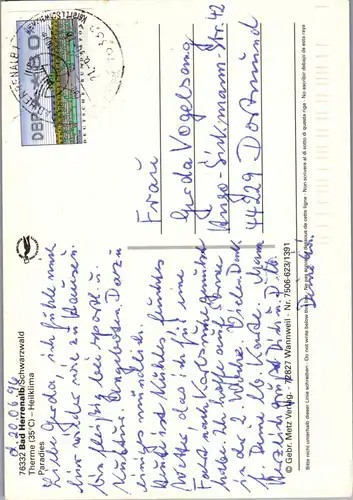 76332 Bad Herrenalb/Schwarzwald
Therme (35°C) – Heilklima
Paradies
d. 20.06.96
Liebe Gerda ich fühle mich
hier wieder wie zu Hause.
bin fleißig bei Sport u.
Kultur. Angeboten. Dazu
einiges mündlich.
Heute ist kühles feuchtes
Wetter das ist für eine
Fahrt nach Karlsruhe genutzt
habe. Ich hoffe auf Sonne
in der 2. Woche. Vielen Dank
f. Deine lb Karte.
Herzlich grüßt Dich u. D. lb.
Deine
Frau
Gerda Vogelsang
Hugo-Sickmann-Str. 42
44229 Dortmund
DBP
DEUTSCHE BUNDESPOST
Bitte nicht unterhalb dieser Linie schreiben · Do not write below this line · Ne pas écrire au dessous de cette ligne · Non scrivere al di sotto di questa riga · No escribir debajo de esta raya
© Gebr. Metz Verlag · 72827 Wannweil · Nr. 7506-623/1391